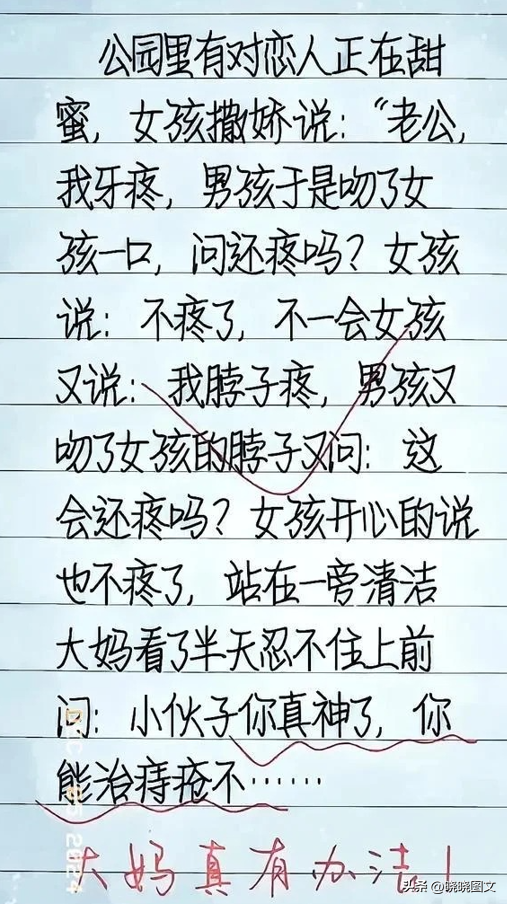 公园里有对恋人正在甜
蜜，女孩撒娇说：“老公，
我牙疼，男孩于是吻了女
孩一口，问还疼吗？女孩
说：不疼了，不一会女孩
又说：我脖子疼，男孩又
吻了女孩的脖子又问：这
会还疼吗？女孩开心的说
也不疼了，站在一旁清洁
大妈看了半天忍不住上前
问：小伙子你真神了，你
能治痔疮不……
大妈真有办法！
头条 @晓晓图文